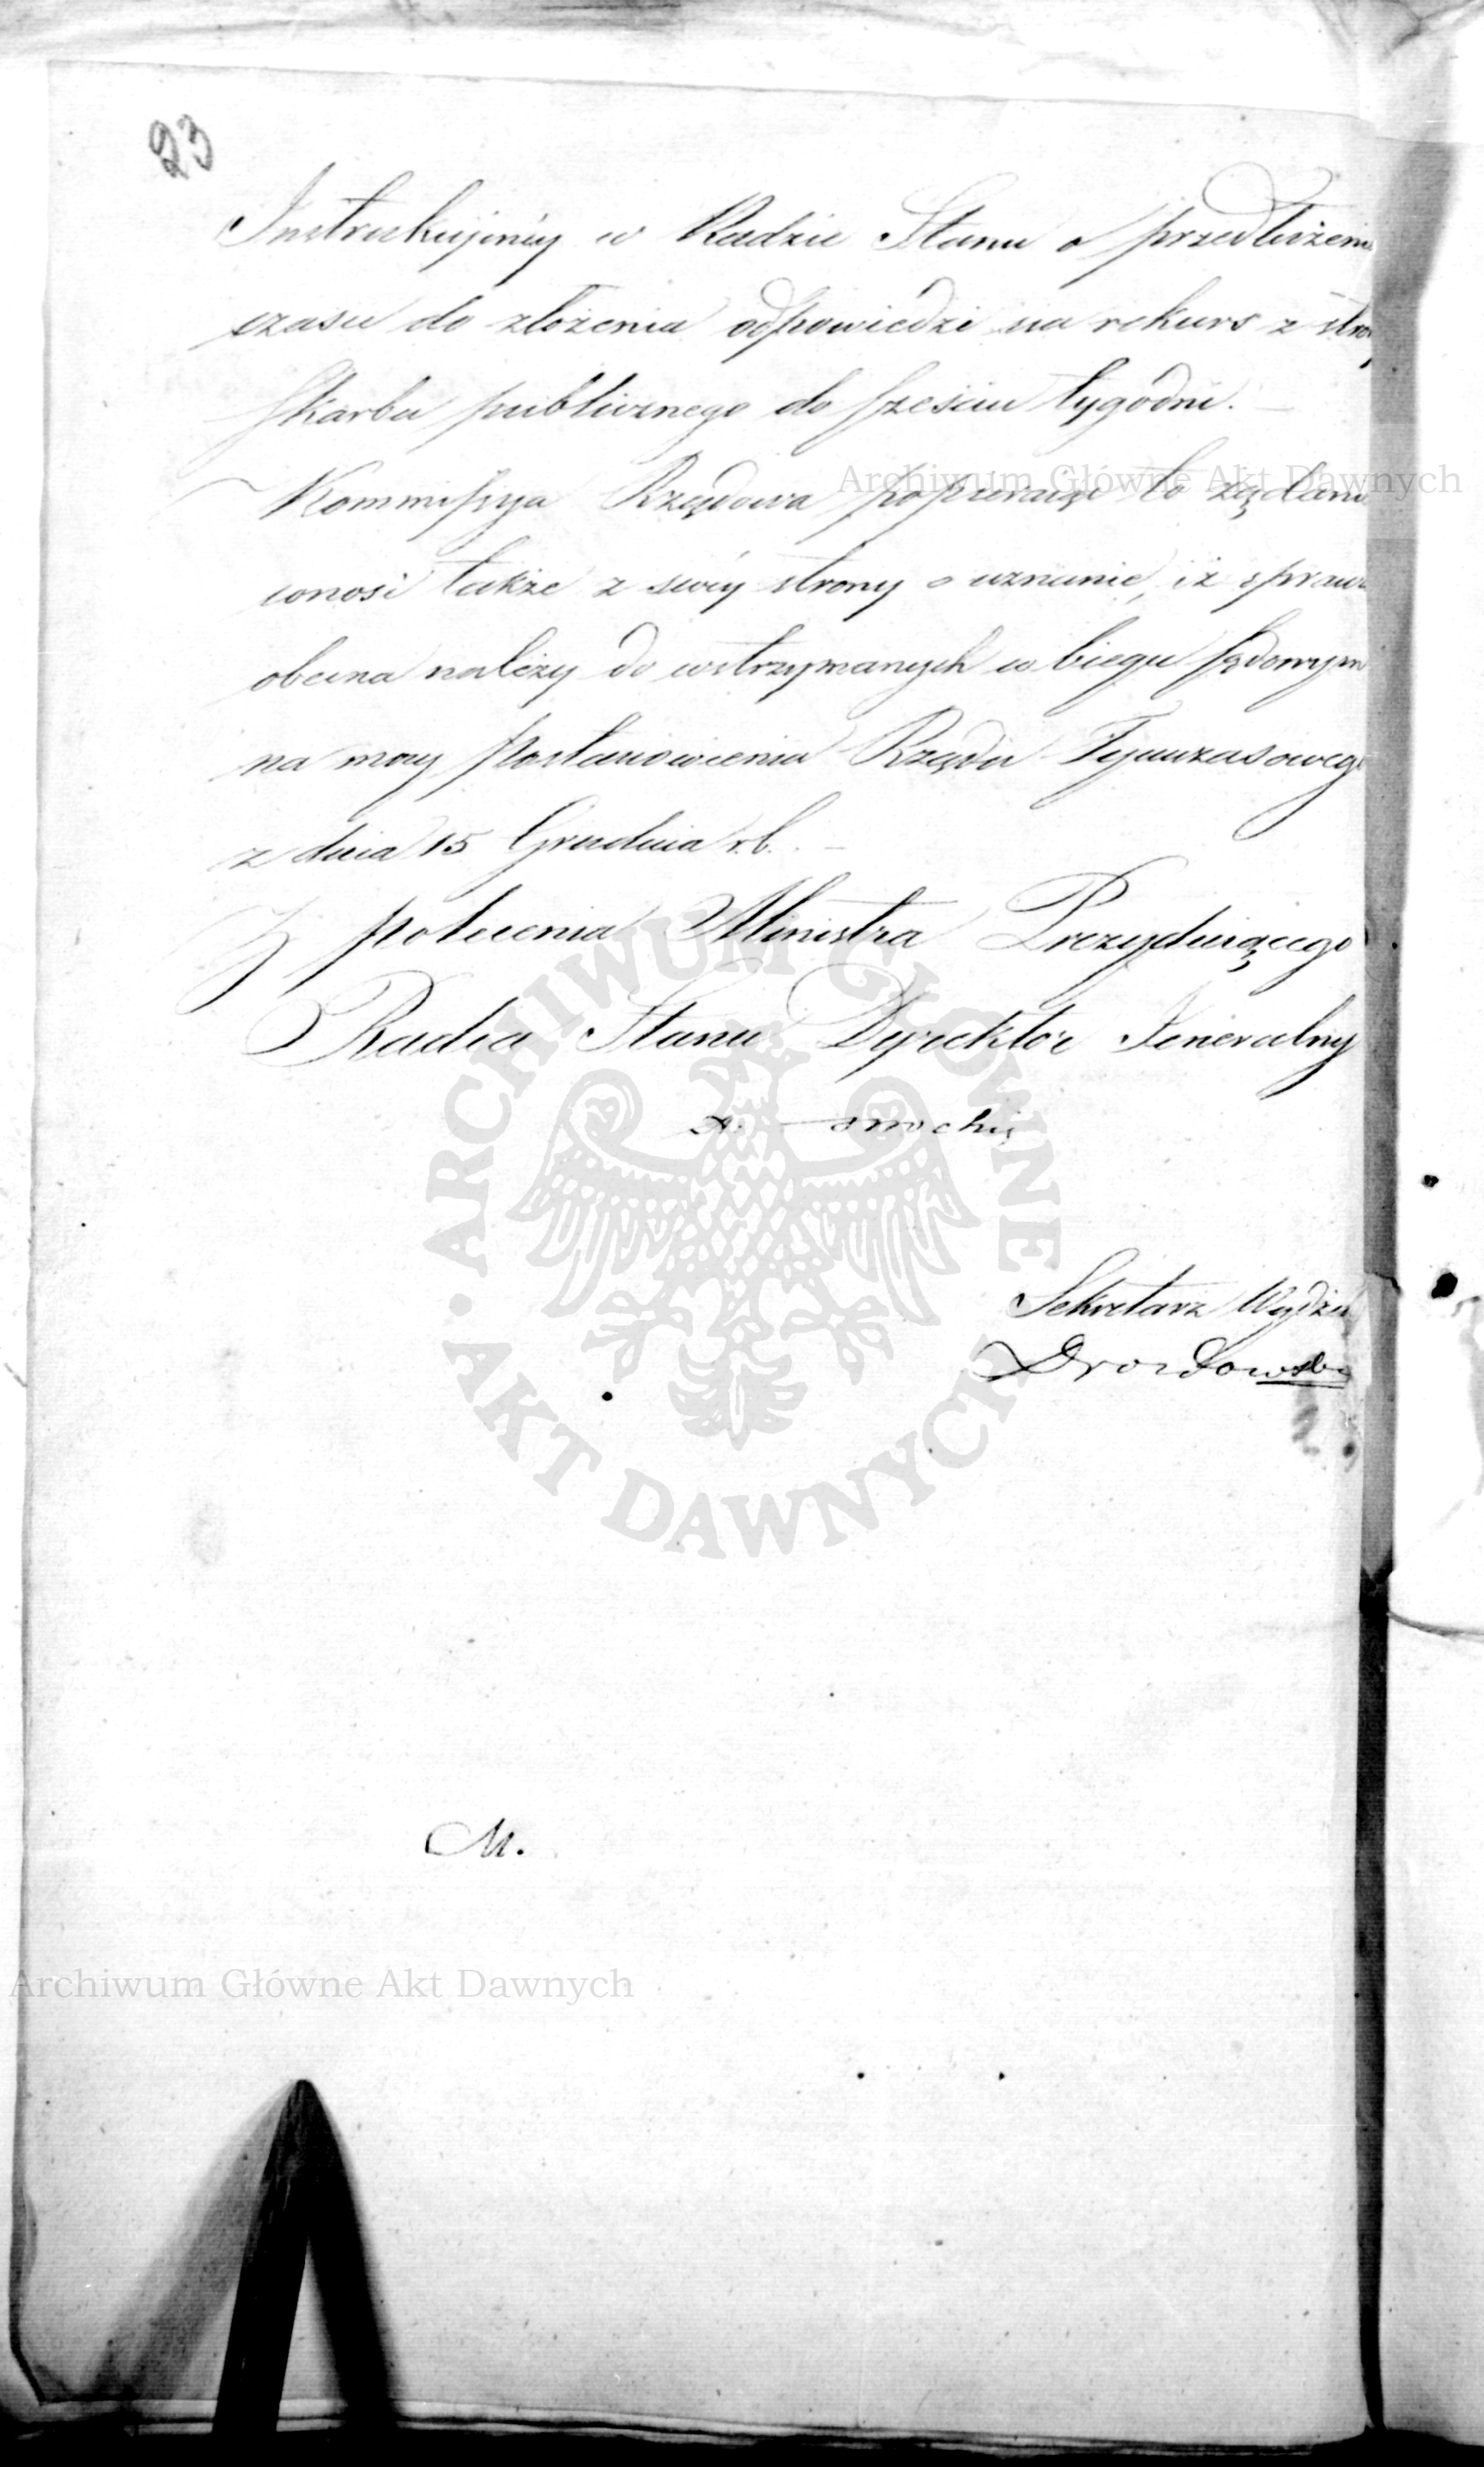 23
Instrukującéy w Radzie Stanu o przedłużenie
czasu do złożenia odpowiedzi na rekurs z stro
Skarbu publicznego do sześciu tygodni. —
Kommissya Rządowa popieraiąc to żądani
wnosi także z swéy strony o uznanie, iż spraw
obecna należy do wstrzymanych w biegu sądowym
na mocy Postanowienia Rządu Tymczasoweg
z dnia 15 Grudnia r.b. —
Z polecenia Ministra Prezyduiącego
Radca Stanu Dyrektor Jeneralny
Sekretarz Wydzia
Drozdowski
M.
Archiwum Główne Akt Dawnych
ARCHIWUM GŁÓWNE
AKT DAWNYCH
Archiwum Główne Akt Dawnych